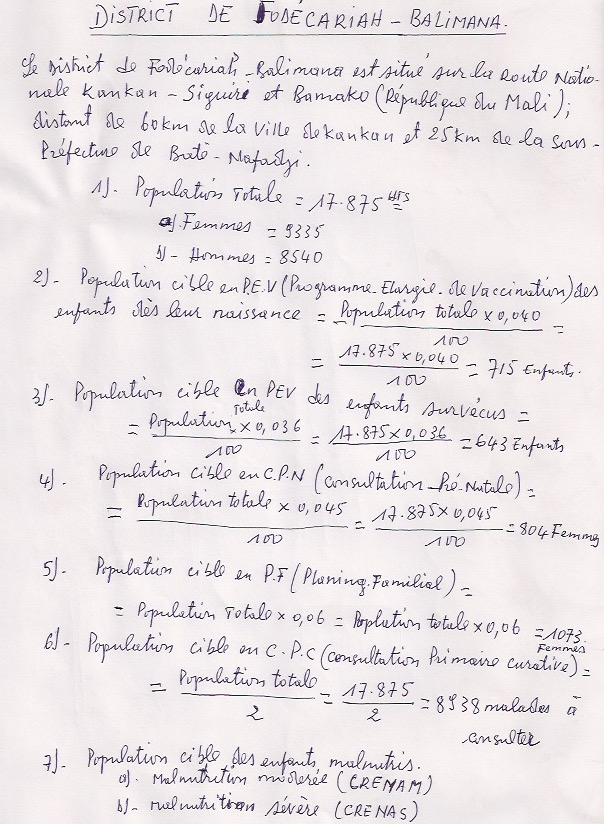 DISTRICT DE FODÉCARIAH - BALIMANA.
Le District de Fodécariah - Balimana est situé sur la Route Natio-
nale Kankan - Siguiri et Bamako (République du Mali);
distant de 60km de la Ville de Kankan et 25km de la Sous-
Préfecture de Baté - Nafadji.
1)- Population Totale = 17.875 Hts
a)- Femmes = 9335
b)- Hommes = 8540
2)- Population cible en P.E.V (Programme Elargie de Vaccination) des
enfants dès leur naissance = Population totale x 0,040 =
100
= 17.875 x 0,040 = 715 Enfants.
100
3)- Population cible en PEV des enfants survécus =
= Population Totale x 0,036 = 17.875 x 0,036 = 643 Enfants
100 100
4)- Population cible en C.P.N (Consultation Pré-Natale) =
= Population totale x 0,045 = 17.875 x 0,045 = 804 Femmes
100 100
5)- Population cible en P.F (Planing Familial) =
= Population Totale x 0,06 = Poplation totale x 0,06 = 1073 Femmes
6)- Population cible en C.P.C (Consultation Primaire curative) =
= Population totale = 17.875 = 8938 malades à
2 2 consulter
7)- Population cible des enfants malnutris.
a)- Malnutrition modérée (CRENAM)
b)- Malnutrition sévère (CRENAS)